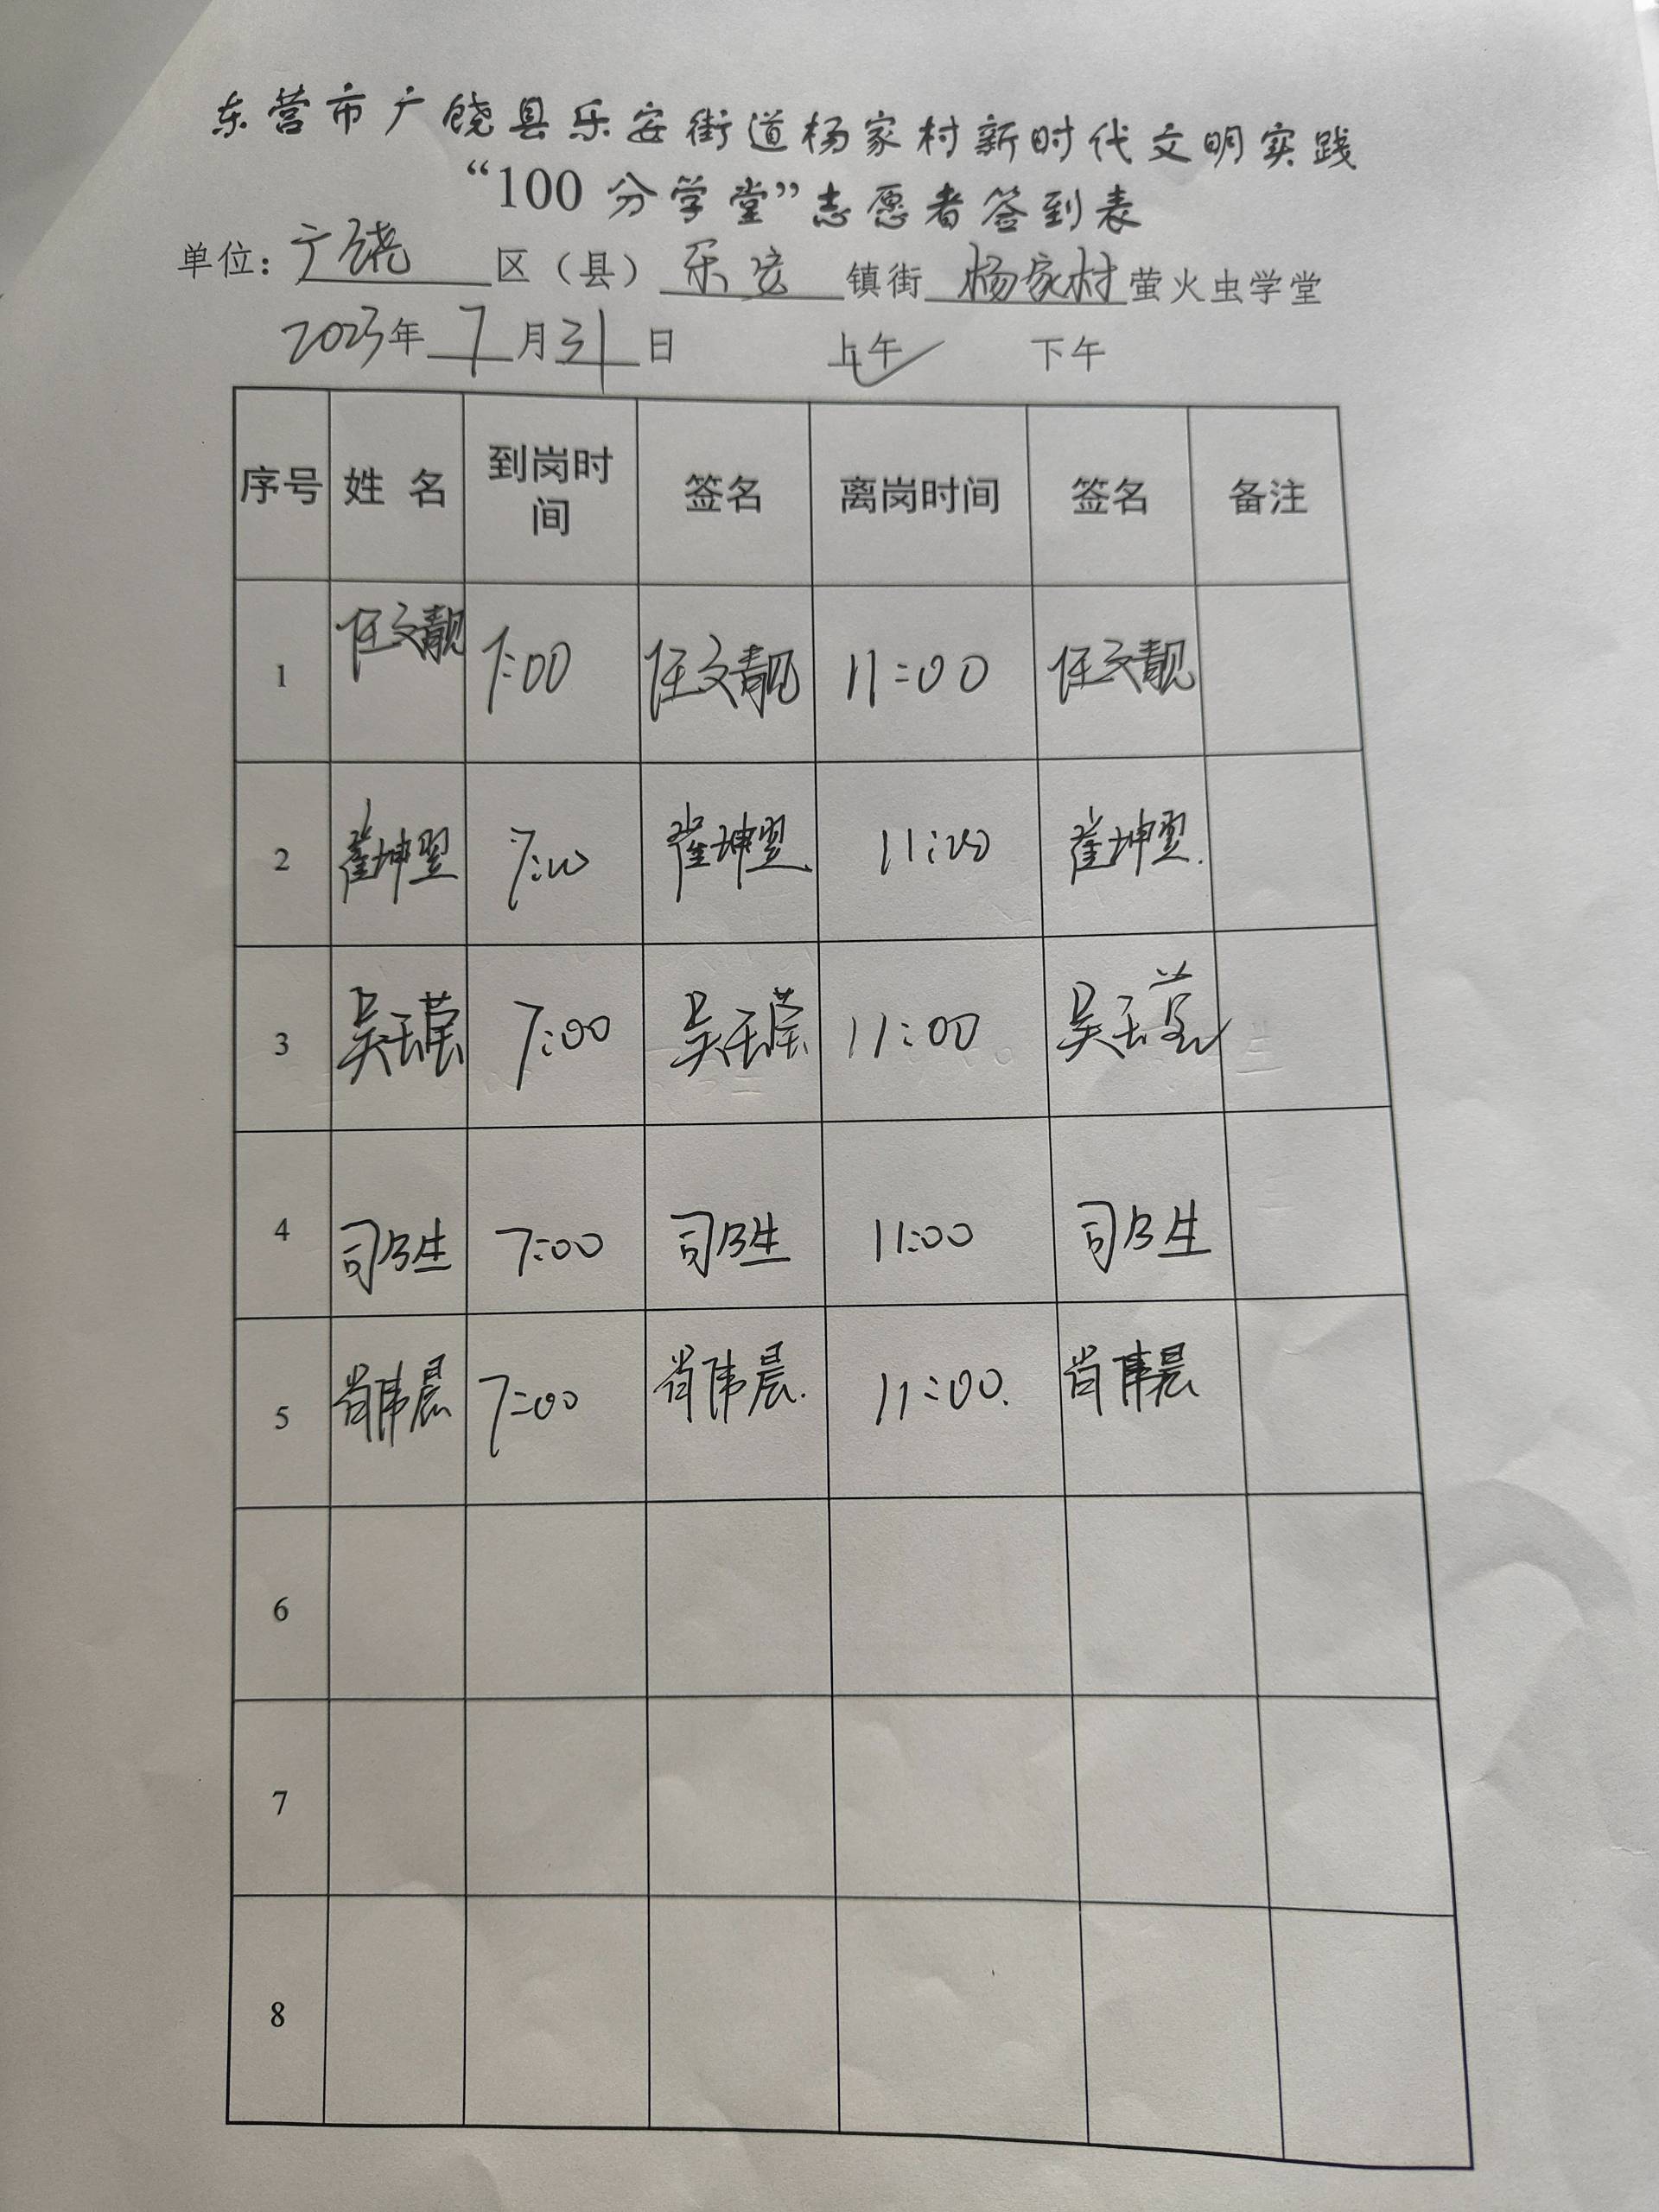 东营市广饶县乐安街道杨家村新时代文明实践
“100 分学堂”志愿者签到表
单位：广饶 区（县） 乐安 镇街 杨家村 萤火虫学堂
2023年 7 月 31 日 上午 下午
序号 姓 名 到岗时间 签名 离岗时间 签名 备注
1 任文靓 7:00 任文靓 11:00 任文靓
2 崔坤翌 7:00 崔坤翌 11:00 崔坤翌
3 吴玉莹 7:00 吴玉莹 11:00 吴玉莹
4 司乃生 7:00 司乃生 11:00 司乃生
5 肖伟晨 7:00 肖伟晨 11:00 肖伟晨
6
7
8